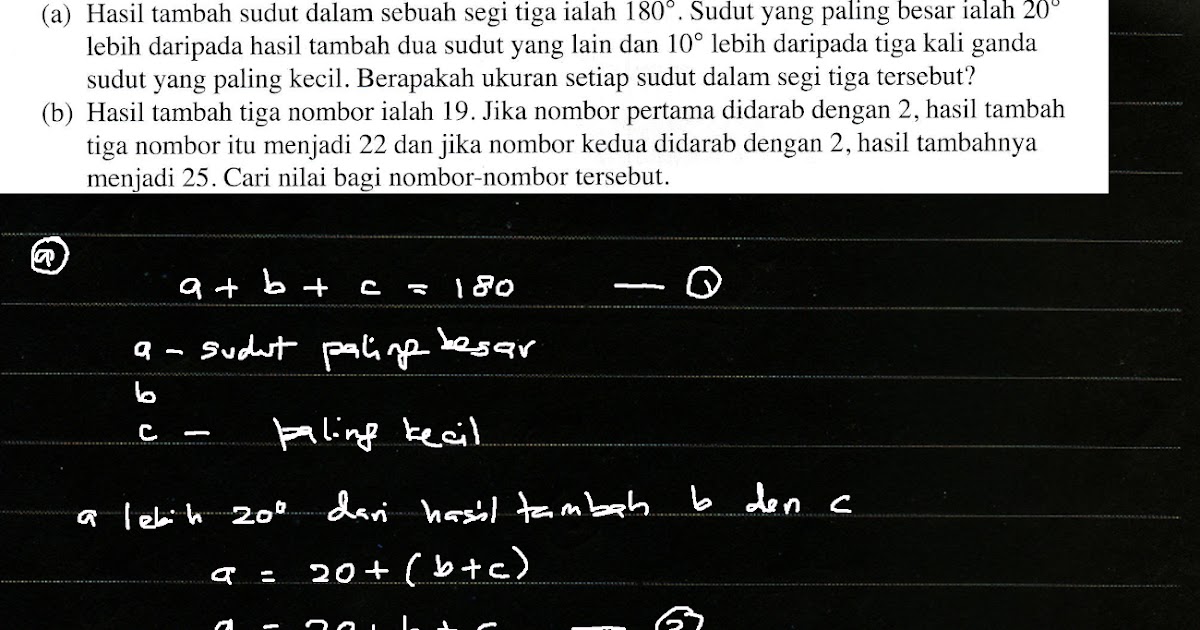 (a) Hasil tambah sudut dalam sebuah segi tiga ialah 180°. Sudut yang paling besar ialah 20°
lebih daripada hasil tambah dua sudut yang lain dan 10° lebih daripada tiga kali ganda
sudut yang paling kecil. Berapakah ukuran setiap sudut dalam segi tiga tersebut?
(b) Hasil tambah tiga nombor ialah 19. Jika nombor pertama didarab dengan 2, hasil tambah
tiga nombor itu menjadi 22 dan jika nombor kedua didarab dengan 2, hasil tambahnya
menjadi 25. Cari nilai bagi nombor-nombor tersebut.
(a)
a + b + c = 180 — (1)
a - sudut paling besar
b
c - paling kecil
a lebih 20° dari hasil tambah b dan c
a = 20 + (b+c)
a = 20 + b + c — (2)